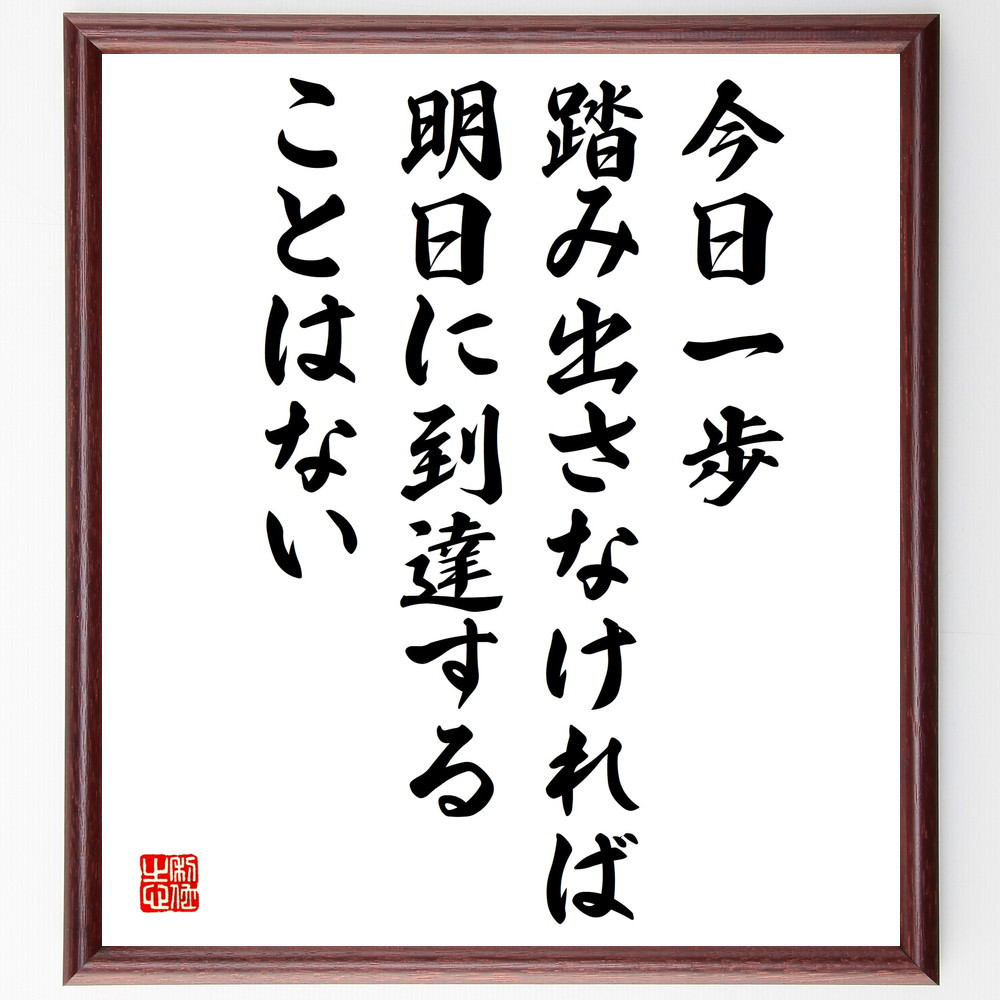 今日一歩
踏み出さなければ
明日に到達する
ことはない